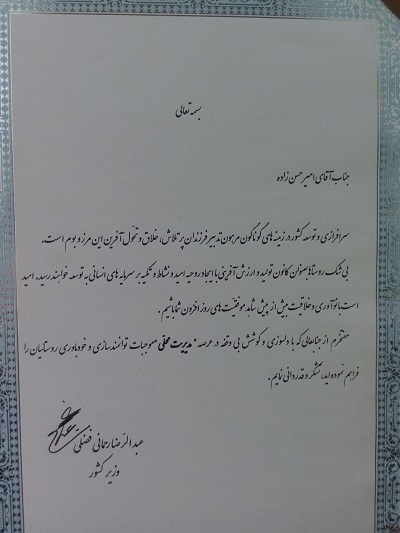 بسمه تعالی
جناب آقای امیر حسن زاده
سرافرازی و توسعه کشور در زمینه های گوناگون مرهون تدبیر فرزندان پر تلاش، خلاق و تحول آفرین این مرز و بوم است.
بی شک روستاها بعنوان کانون تولید و ارزش آفرینی با ایجاد روحیه امید و نشاط و تکیه بر سرمایه های انسانی به توسعه خواهند رسید. امید
است با نوآوری و خلاقیت بیش از پیش شاهد موفقیت های روز افزون شما باشیم.
مفتخرم از جنابعالی که با دلسوزی و کوشش بی وقفه در عرصه "مدیریت محلی" موجبات توانمندسازی و خودباوری روستائیان را
فراهم نموده اید، تشکر و قدردانی نمایم.
عبدالرضا رحمانی فضلی
وزیر کشور